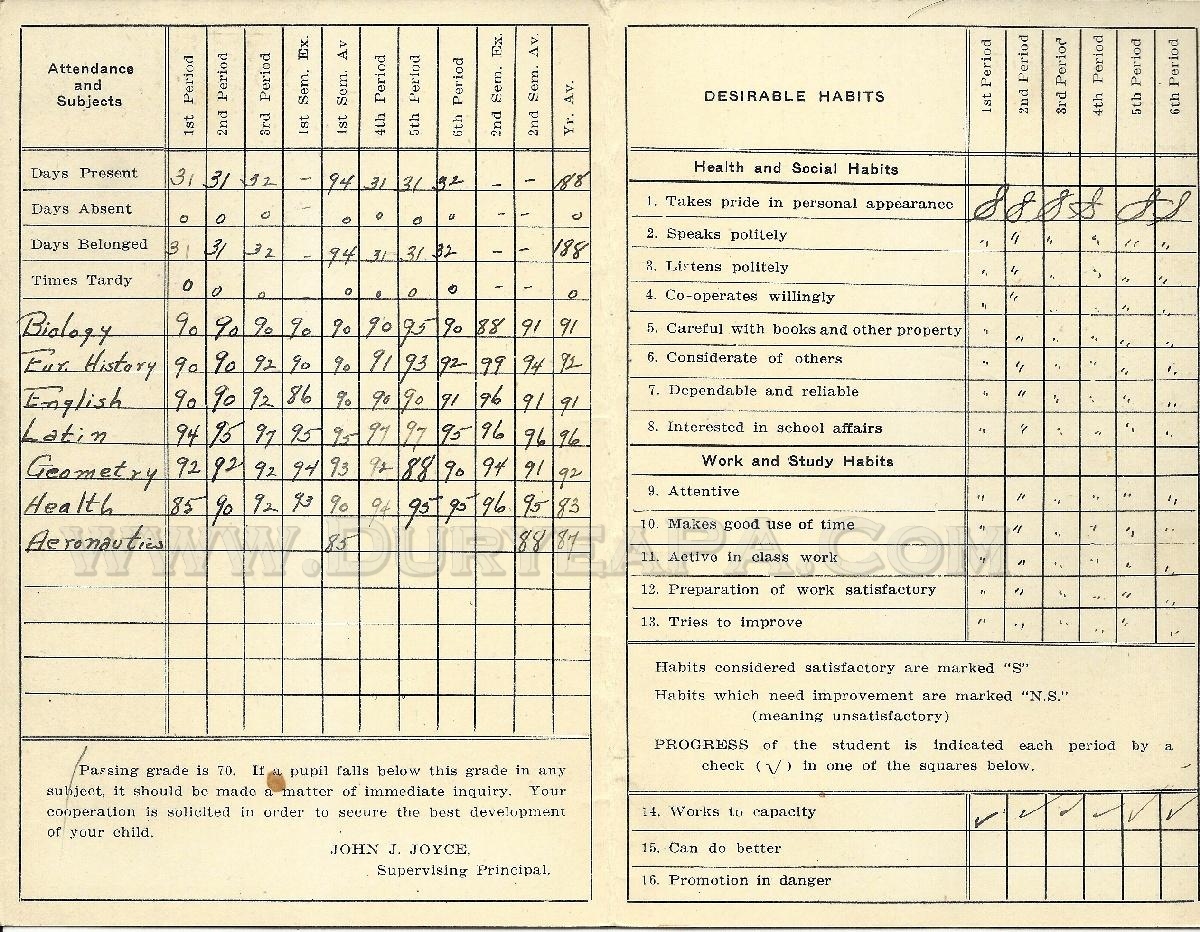 Attendance and Subjects | 1st Period | 2nd Period | 3rd Period | 1st Sem. Ex. | 1st Sem. Av | 4th Period | 5th Period | 6th Period | 2nd Sem. Ex. | 2nd Sem. Av. | Yr. Av.
Days Present 31 31 32 - 94 31 31 32 - - 188
Days Absent 0 0 0 - 0 0 0 0 - - 0
Days Belonged 31 31 32 - 94 31 31 32 - - 188
Times Tardy 0 0 0 - 0 0 0 0 - - 0
Biology 90 90 90 90 90 90 95 90 88 91 91
Eur. History 90 90 92 90 90 91 93 92 99 94 92
English 90 90 92 86 90 90 90 91 96 91 91
Latin 94 95 97 95 95 97 97 95 96 96 96
Geometry 92 92 92 94 93 92 88 90 94 91 92
Health 85 90 92 93 90 94 95 95 96 95 83
Aeronautics 85 88 87
www.DuryeaPA.com
Passing grade is 70. If a pupil falls below this grade in any
subject, it should be made a matter of immediate inquiry. Your
cooperation is solicited in order to secure the best development
of your child.
JOHN J. JOYCE,
Supervising Principal.
DESIRABLE HABITS | 1st Period | 2nd Period | 3rd Period | 4th Period | 5th Period | 6th Period
Health and Social Habits
1. Takes pride in personal appearance S S S S S S
2. Speaks politely " " " " " "
3. Listens politely " " " " " "
4. Co-operates willingly " " "
5. Careful with books and other property " " " " " "
6. Considerate of others " " " " " "
7. Dependable and reliable " " " " " "
8. Interested in school affairs " " " " " "
Work and Study Habits
9. Attentive " " " " " "
10. Makes good use of time " " " " " "
11. Active in class work " " " " " "
12. Preparation of work satisfactory " " " " " "
13. Tries to improve " " " " " "
Habits considered satisfactory are marked "S"
Habits which need improvement are marked "N.S."
(meaning unsatisfactory)
PROGRESS of the student is indicated each period by a
check (√) in one of the squares below.
14. Works to capacity ✓ ✓ ✓ ✓ ✓ ✓
15. Can do better
16. Promotion in danger